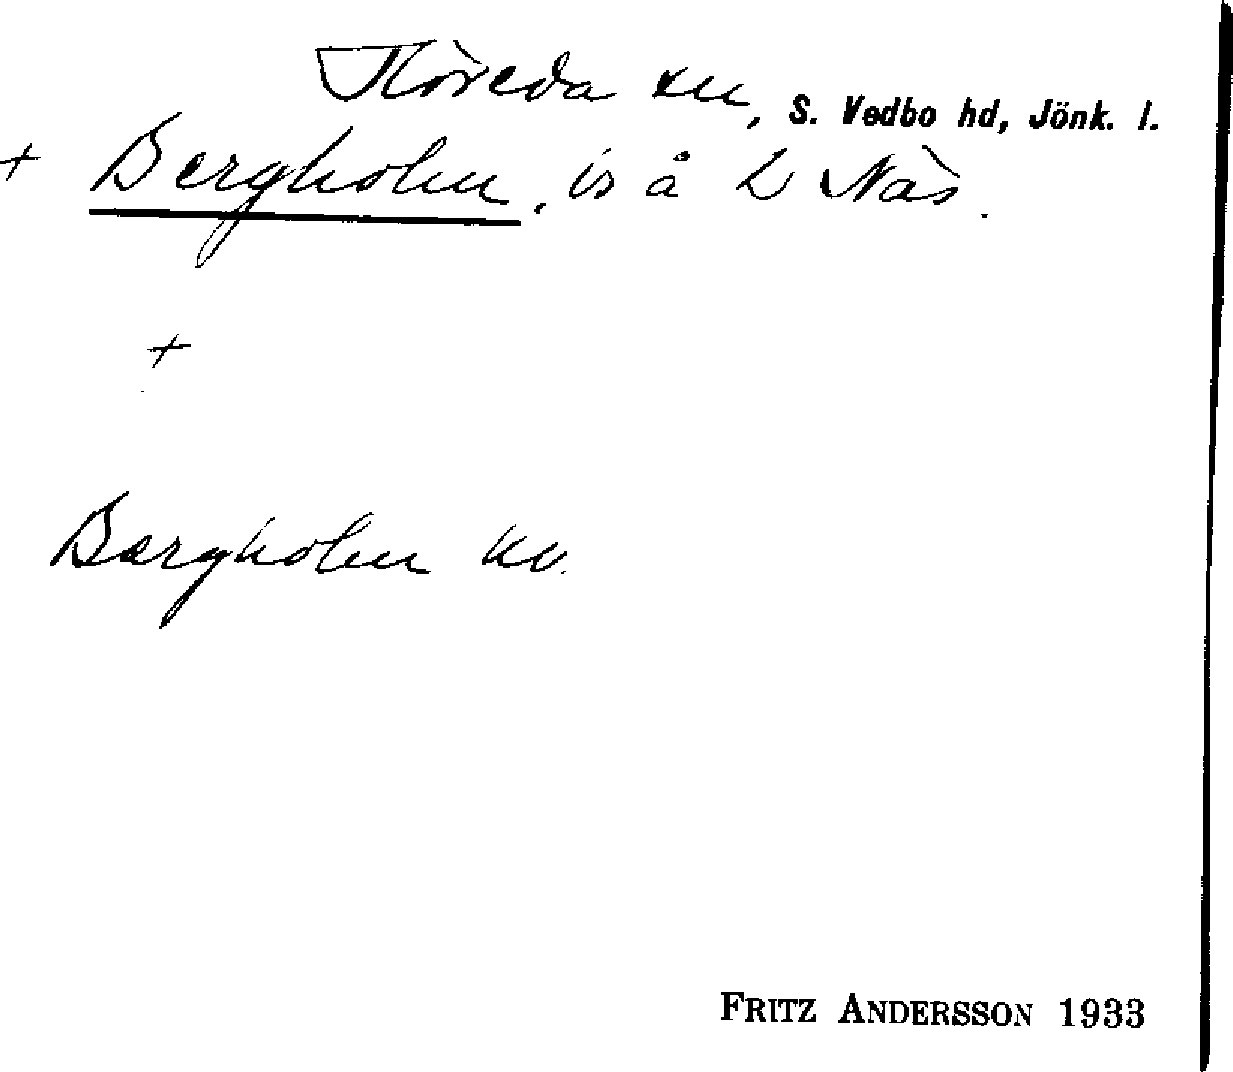 Flöreda sn, S. Vedbo hd, Jönk. l.
+ Bergholm, is å L Näs.
+
Bergholm kv.
FRITZ ANDERSSON 1933